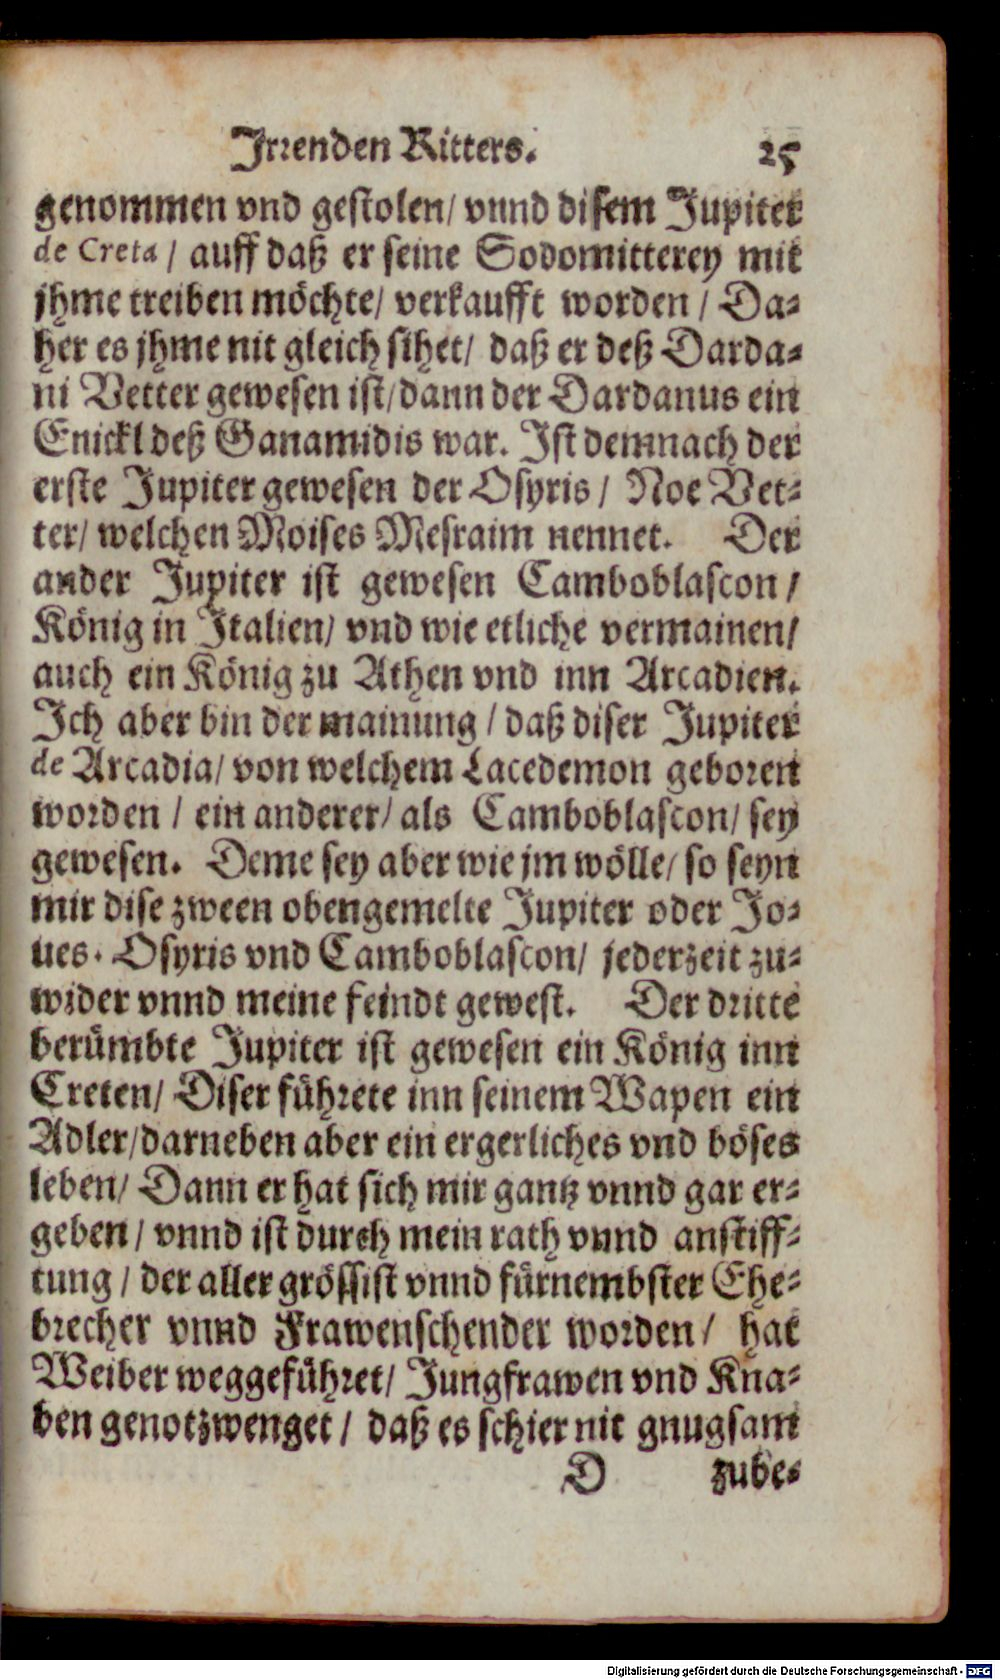 Irrenden Ritters. 25
genommen vnd gestolen/ vnnd disem Jupiter
de Creta / auff daß er seine Sodomitterey mit
jhme treiben möchte/ verkaufft worden / Da-
her es jhme nit gleich sihet/ daß er deß Darda-
ni Vetter gewesen ist/ dann der Dardanus ein
Enickl deß Ganamidis war. Ist demnach der
erste Jupiter gewesen der Osyris / Noe Vet-
ter/ welchen Moises Mesraim nennet. Der
ander Jupiter ist gewesen Camboblascon /
König in Italien/ vnd wie etliche vermainen/
auch ein König zu Athen vnd inn Arcadien.
Ich aber bin der mainung / daß diser Jupiter
de Arcadia/ von welchem Lacedemon geboren
worden / ein anderer/ als Camboblascon/ sey
gewesen. Deme sey aber wie jm wölle/ so seyn
mir dise zween obengemelte Jupiter oder Jo-
ues. Osyris vnd Camboblascon/ jederzeit zu-
wider vnnd meine feindt gewest. Der dritte
berümbte Jupiter ist gewesen ein König inn
Creten/ Diser führete inn seinem Wapen ein
Adler/ darneben aber ein ergerliches vnd böses
leben/ Dann er hat sich mir gantz vnnd gar er-
geben / vnnd ist durch mein rath vnnd anstiff-
tung / der aller grössist vnnd fürnembster Ehe-
brecher vnnd Frawenschender worden / hat
Weiber weggeführet/ Jungfrawen vnd Kna-
ben genotzwenget / daß es schier nit gnugsam
D zube-
Digitalisierung gefördert durch die Deutsche Forschungsgemeinschaft - DFG